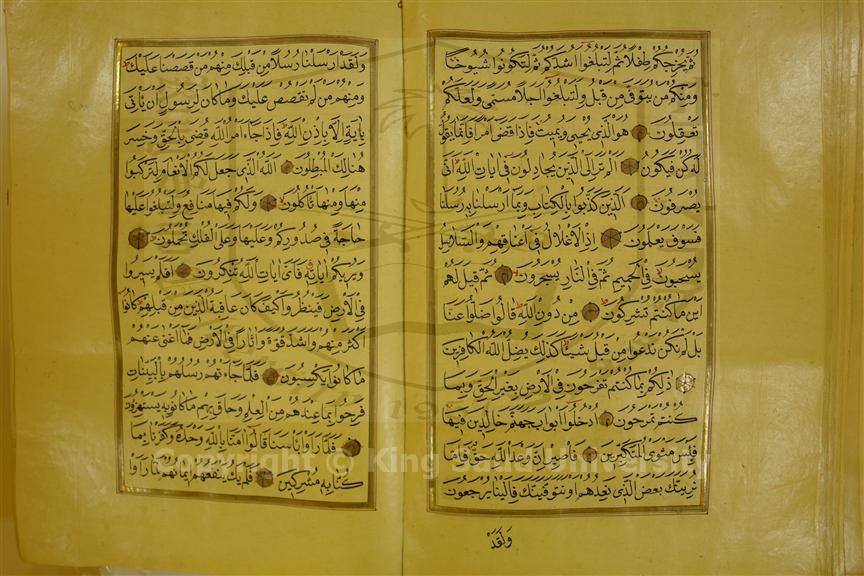 ثُمَّ يُخْرِجُكُمْ طِفْلًا ثُمَّ لِتَبْلُغُوا اَشُدَّكُمْ ثُمَّ لِتَكُونُوا شُيُوخًا
وَمِنْكُمْ مَنْ يُتَوَفّٰى مِنْ قَبْلُ وَلِتَبْلُغُوا اَجَلًا مُسَمًّى وَلَعَلَّكُمْ
تَعْقِلُونَ هُوَ الَّذِي يُحْيِي وَيُمِيتُ فَاِذَا قَضٰى اَمْرًا فَاِنَّمَا يَقُولُ
لَهُ كُنْ فَيَكُونُ اَلَمْ تَرَ اِلَى الَّذِينَ يُجَادِلُونَ فِي اٰيَاتِ اللّٰهِ اَنّٰى
يُصْرَفُونَ اَلَّذِينَ كَذَّبُوا بِالْكِتَابِ وَبِمَا اَرْسَلْنَا بِهِ رُسُلَنَا
فَسَوْفَ يَعْلَمُونَ اِذِ الْاَغْلَالُ فِي اَعْنَاقِهِمْ وَالسَّلَاسِلُ
يُسْحَبُونَ فِي الْحَمِيمِ ثُمَّ فِي النَّارِ يُسْجَرُونَ ثُمَّ قِيلَ لَهُمْ
اَيْنَ مَا كُنْتُمْ تُشْرِكُونَ مِنْ دُونِ اللّٰهِ قَالُوا ضَلُّوا عَنَّا
بَلْ لَمْ نَكُنْ نَدْعُوا مِنْ قَبْلُ شَيْئًا كَذٰلِكَ يُضِلُّ اللّٰهُ الْكَافِرِينَ
ذٰلِكُمْ بِمَا كُنْتُمْ تَفْرَحُونَ فِي الْاَرْضِ بِغَيْرِ الْحَقِّ وَبِمَا
كُنْتُمْ تَمْرَحُونَ اُدْخُلُوا اَبْوَابَ جَهَنَّمَ خَالِدِينَ فِيهَا
فَبِئْسَ مَثْوَى الْمُتَكَبِّرِينَ فَاصْبِرْ اِنَّ وَعْدَ اللّٰهِ حَقٌّ فَاِمَّا
نُرِيَنَّكَ بَعْضَ الَّذِي نَعِدُهُمْ اَوْ نَتَوَفَّيَنَّكَ فَاِلَيْنَا يُرْجَعُونَ
وَلَقَدْ
وَلَقَدْ اَرْسَلْنَا رُسُلًا مِنْ قَبْلِكَ مِنْهُمْ مَنْ قَصَصْنَا عَلَيْكَ
وَمِنْهُمْ مَنْ لَمْ نَقْصُصْ عَلَيْكَ وَمَا كَانَ لِرَسُولٍ اَنْ يَأْتِيَ
بِاٰيَةٍ اِلَّا بِاِذْنِ اللّٰهِ فَاِذَا جَاءَ اَمْرُ اللّٰهِ قُضِيَ بِالْحَقِّ وَخَسِرَ
هُنَالِكَ الْمُبْطِلُونَ اَللّٰهُ الَّذِي جَعَلَ لَكُمُ الْاَنْعَامَ لِتَرْكَبُوا
مِنْهَا وَمِنْهَا تَأْكُلُونَ وَلَكُمْ فِيهَا مَنَافِعُ وَلِتَبْلُغُوا عَلَيْهَا
حَاجَةً فِي صُدُورِكُمْ وَعَلَيْهَا وَعَلَى الْفُلْكِ تُحْمَلُونَ
وَيُرِيكُمْ اٰيَاتِهِ فَاَيَّ اٰيَاتِ اللّٰهِ تُنْكِرُونَ اَفَلَمْ يَسِيرُوا
فِي الْاَرْضِ فَيَنْظُرُوا كَيْفَ كَانَ عَاقِبَةُ الَّذِينَ مِنْ قَبْلِهِمْ كَانُوا
اَكْثَرَ مِنْهُمْ وَاَشَدَّ قُوَّةً وَاٰثَارًا فِي الْاَرْضِ فَمَا اَغْنٰى عَنْهُمْ
مَا كَانُوا يَكْسِبُونَ فَلَمَّا جَاءَتْهُمْ رُسُلُهُمْ بِالْبَيِّنَاتِ
فَرِحُوا بِمَا عِنْدَهُمْ مِنَ الْعِلْمِ وَحَاقَ بِهِمْ مَا كَانُوا بِهِ يَسْتَهْزِؤُنَ
فَلَمَّا رَاَوْا بَأْسَنَا قَالُوا اٰمَنَّا بِاللّٰهِ وَحْدَهُ وَكَفَرْنَا بِمَا
كُنَّا بِهِ مُشْرِكِينَ فَلَمْ يَكُ يَنْفَعُهُمْ اِيمَانُهُمْ لَمَّا رَاَوْا
Copyright © King Saud University